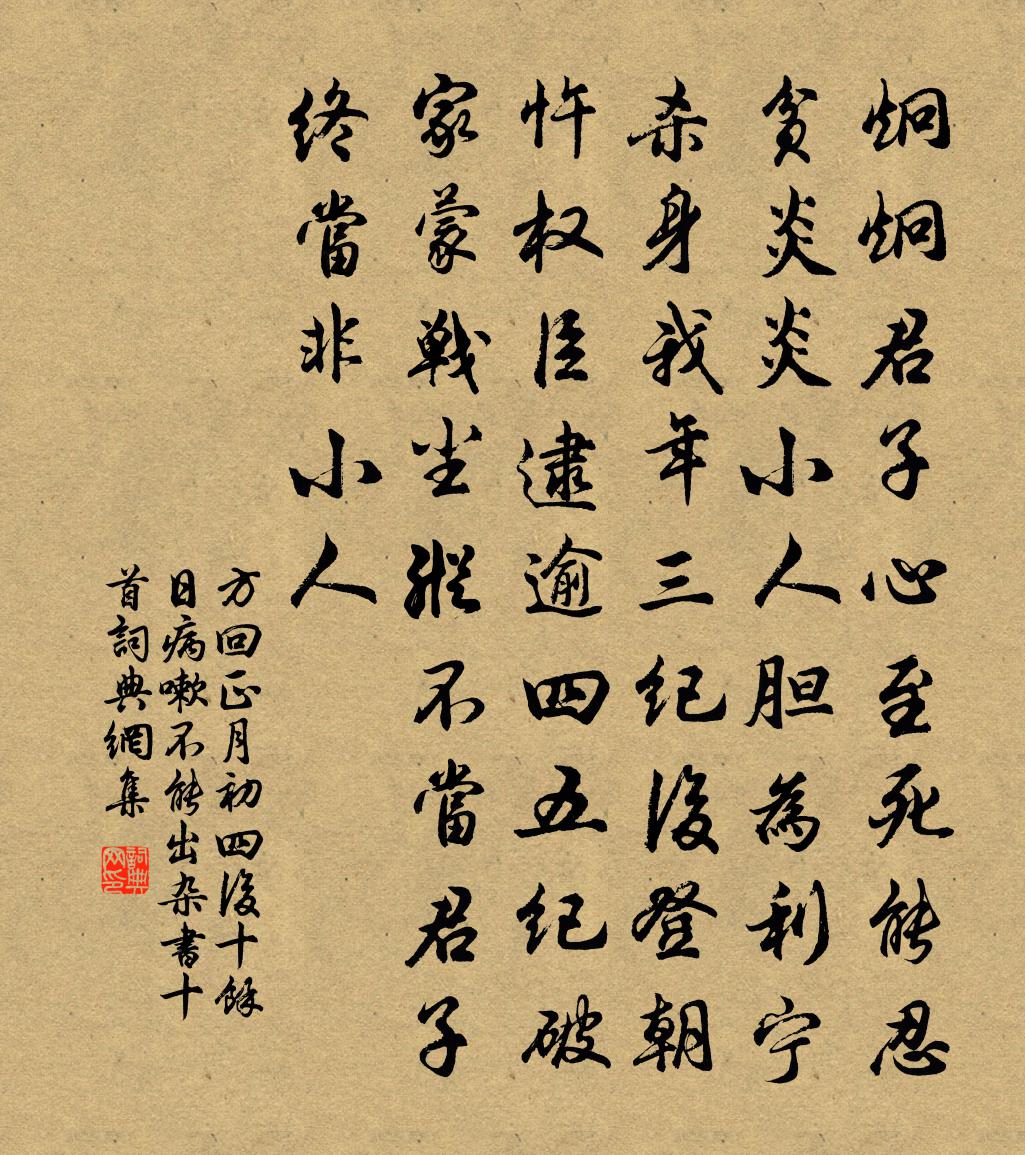 炯炯君子心至死能忍
贫炎炎小人胆為利宁
杀身我年三纪後登朝
忤权臣逮逾四五纪破
家蒙戰坐縱不當君子
终當非小人
方回正月初四後十餘
日病嗽不能出杂書十
首詞典網集
詞典
网印